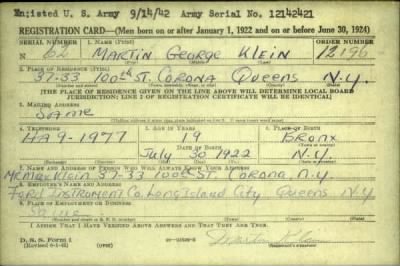 Enlisted U. S. Army 9/14/42 Army Serial No. 12142421
REGISTRATION CARD—(Men born on or after January 1, 1922 and on or before June 30, 1924)
SERIAL NUMBER 1. NAME (Print) ORDER NUMBER
N 62 MARTIN GEORGE KLEIN 12196
2. PLACE OF RESIDENCE (Print)
37-33 100th ST. CORONA QUEENS N.Y.
[THE PLACE OF RESIDENCE GIVEN ON THE LINE ABOVE WILL DETERMINE LOCAL BOARD
JURISDICTION; LINE 2 OF REGISTRATION CERTIFICATE WILL BE IDENTICAL]
3. MAILING ADDRESS
Same
4. TELEPHONE 5. AGE IN YEARS 6. PLACE OF BIRTH
HA 9-1977 19 Bronx
DATE OF BIRTH
July 30 1922 N.Y.
7. NAME AND ADDRESS OF PERSON WHO WILL ALWAYS KNOW YOUR ADDRESS
Mr. Max Klein 37-33 100th St. Corona, N.Y.
8. EMPLOYER'S NAME AND ADDRESS
Ford Instrument Co. Long Island City Queens N.Y.
9. PLACE OF EMPLOYMENT OR BUSINESS
Same
I AFFIRM THAT I HAVE VERIFIED ABOVE ANSWERS AND THAT THEY ARE TRUE.
D. S. S. Form 1
Martin Klein